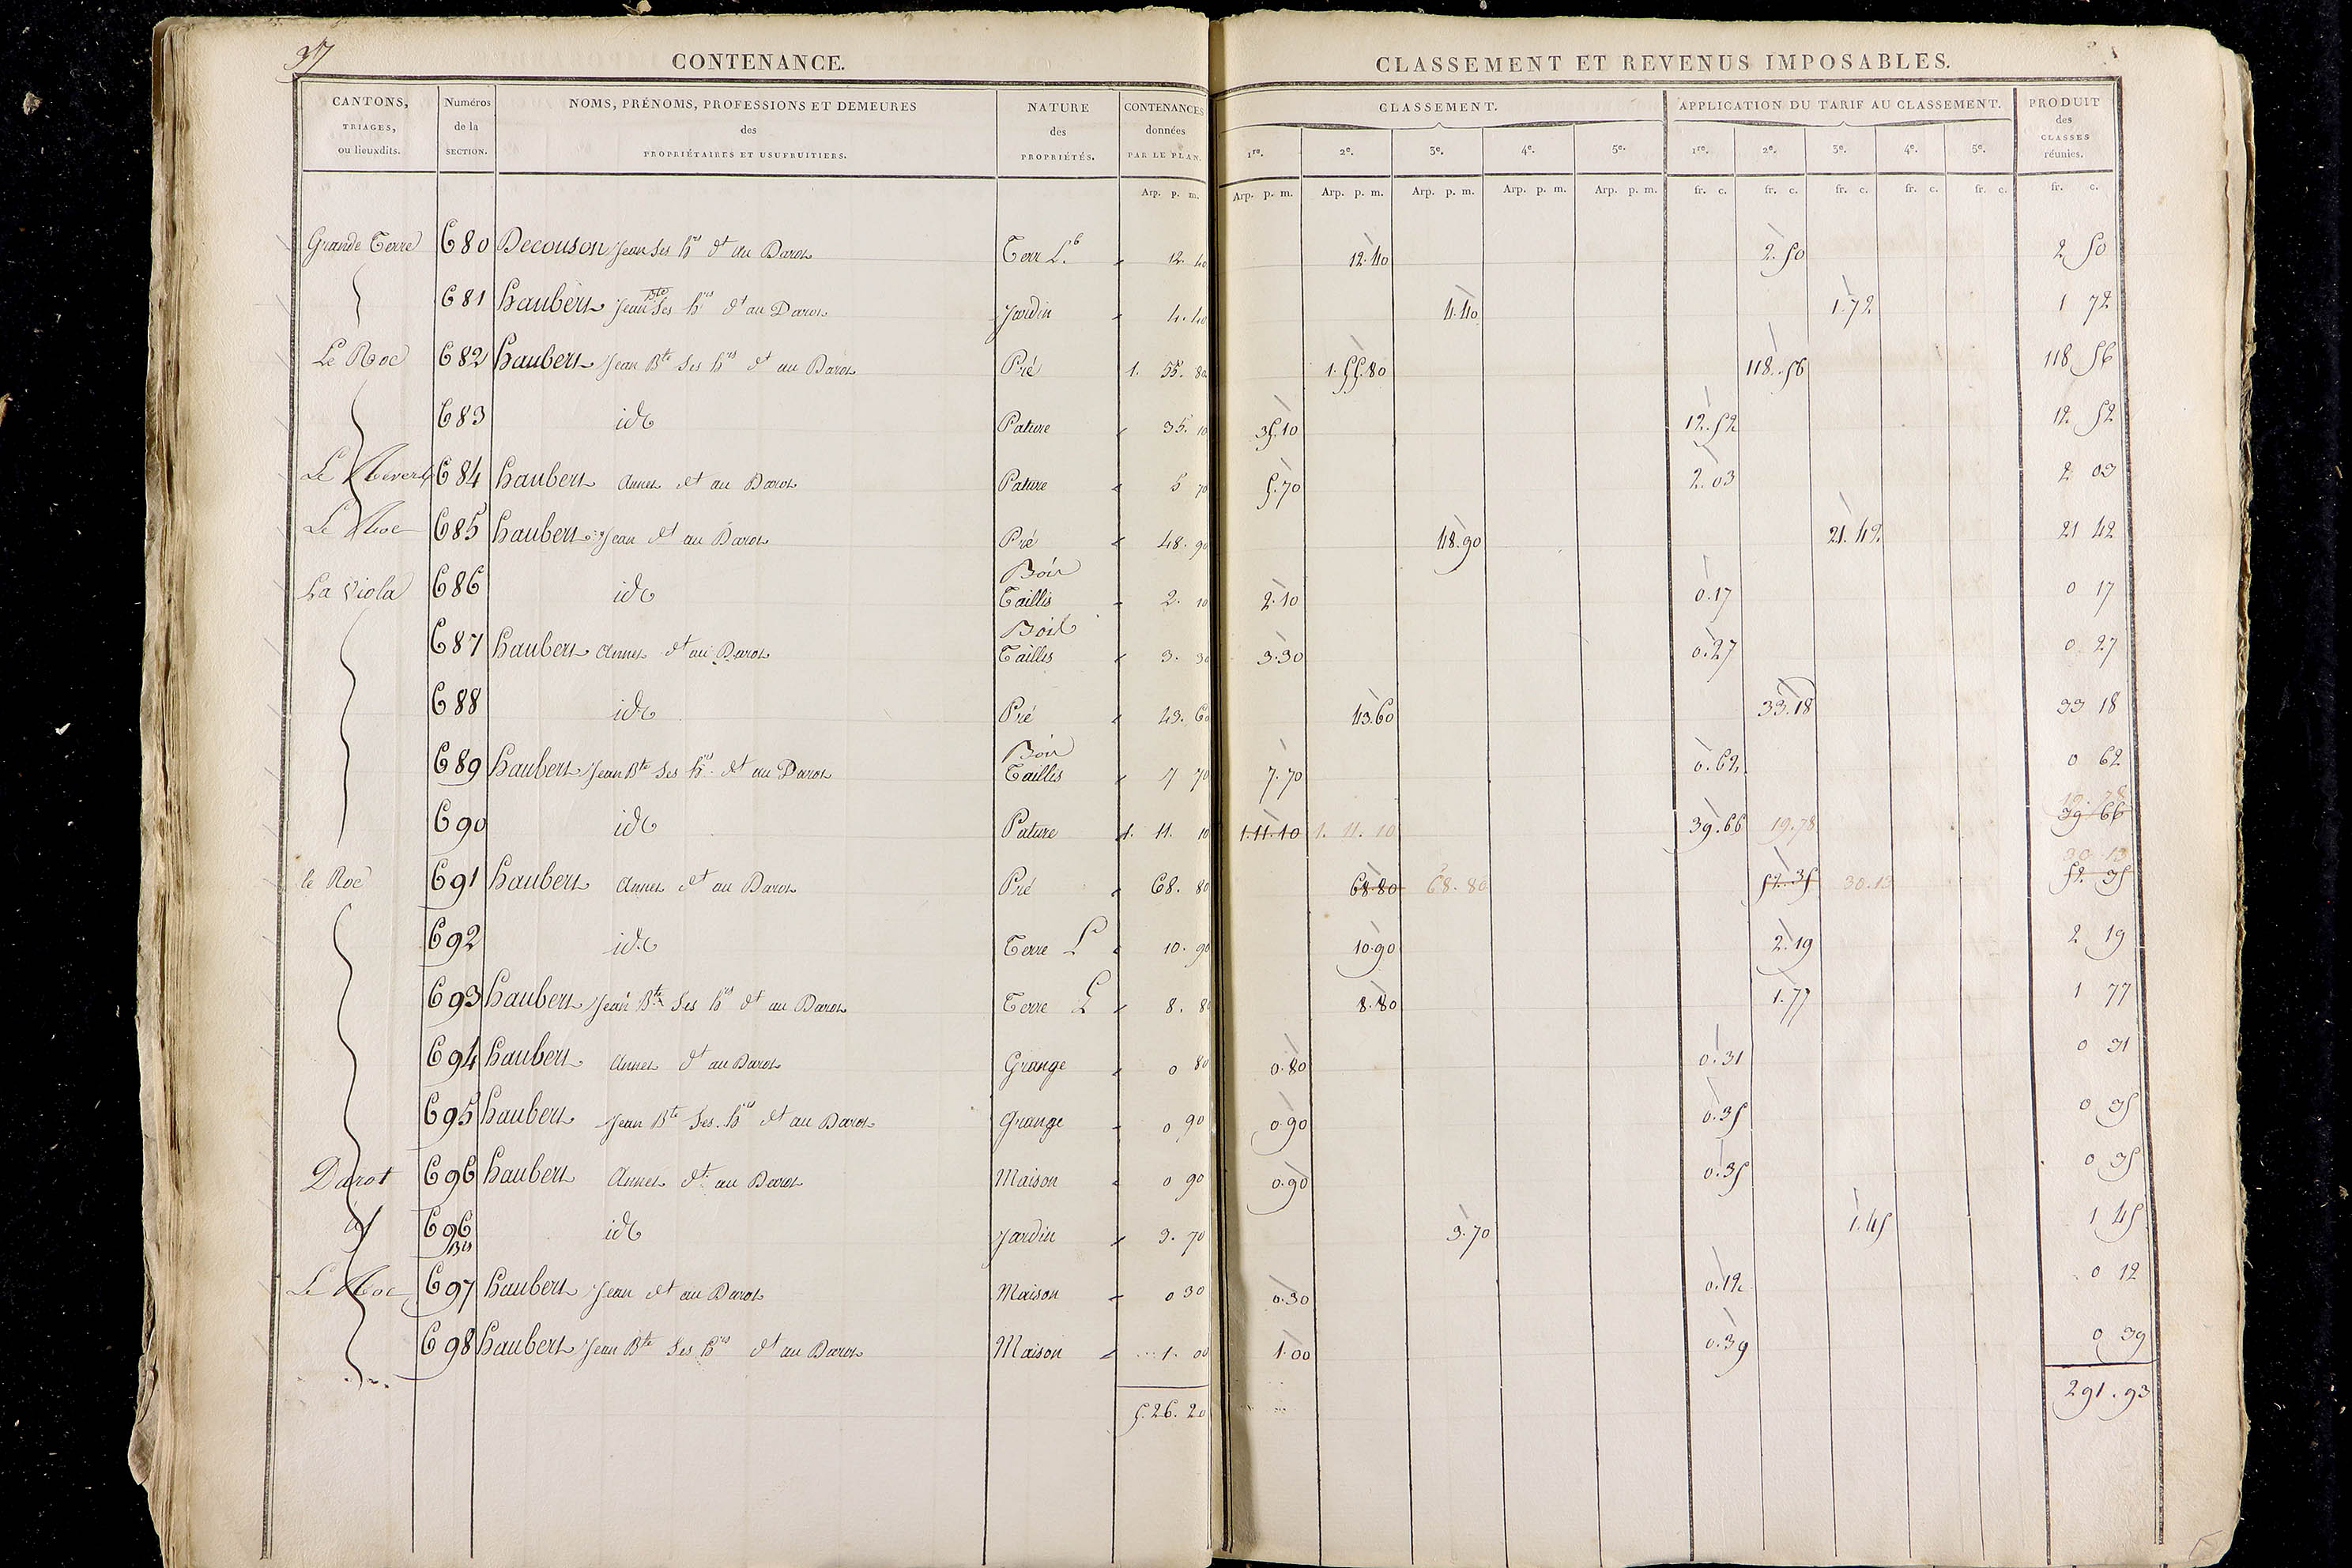 37
CONTENANCE.
CLASSEMENT ET REVENUS IMPOSABLES.
CANTONS, TRIAGES, ou lieuxdits.
Numéros de la SECTION.
NOMS, PRÉNOMS, PROFESSIONS ET DEMEURES des PROPRIÉTAIRES ET USUFRUITIERS.
NATURE des PROPRIÉTÉS.
CONTENANCES données PAR LE PLAN.
CLASSEMENT.
APPLICATION DU TARIF AU CLASSEMENT.
PRODUIT des CLASSES réunies.
1re. 2e. 3e. 4e. 5e. 1re. 2e. 3e. 4e. 5e.
Arp. p. m. Arp. p. m. Arp. p. m. Arp. p. m. Arp. p. m. Arp. p. m. fr. c. fr. c. fr. c. fr. c. fr. c. fr. c.
Grande Terre 680 Decouson Jean Ses hrs dt au Darot Terr L. 12. 40 12.40 2.50 2 50
681 haubert Jean Bte Ses hrs dt au Darot Jardin 4.40 4.40 1.72 1 72
Le Roc 682 haubert Jean Bte Ses hrs dt au Darot Pré 1. 55. 80 1.55.80 118.56 118 56
683 id Pature 35. 10 35.10 12.52 12 52
Le 684 haubert Annet dt au Darot Pature 5 70 5.70 2.03 2 03
Le Roc 685 haubert Jean dt au Darot Pré 48. 90 48.90 21.42 21 42
La Viola 686 id Bois Taillis 2. 10 2.10 0.17 0 17
687 haubert Annet dt au Darot Bois Taillis 3. 30 3.30 0.27 0 27
688 id Pré 43. 60 43.60 33.18 33 18
689 haubert Jean Bte Ses hrs dt au Darot Bois Taillis 7 70 7.70 0.62 0 62
690 id Pature 1. 11. 10 1.11.10 1. 11. 10 39.66 19.78 19.78 39 66
le Roc 691 haubert Annet dt au Darot Pré 68. 80 68.80 68.80 52.35 30.13 30 13 52 35
692 id Terre L 10. 90 10.90 2.19 2 19
693 haubert Jean Bte Ses hrs dt au Darot Terre L 8. 80 8.80 1.77 1 77
694 haubert Annet dt au Darot Grange 0 80 0.80 0.31 0 31
695 haubert Jean Bte Ses hrs dt au Darot Grange 0 90 0.90 0.35 0 35
Darot 696 haubert Annet dt au Darot Maison 0 90 0.90 0.35 0 35
696 Bis id Jardin 3. 70 3.70 1.45 1 45
Le Roc 697 haubert Jean dt au Darot Maison 0 30 0.30 0.12 0 12
698 haubert Jean Bte Ses hrs dt au Darot Maison 1. 00 1.00 0.39 0 39
5.26.20 291.93